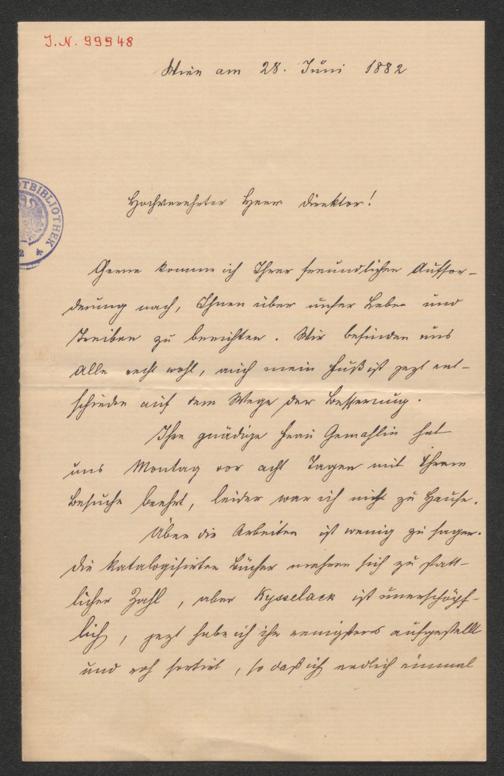 J.N. 99948
Wien am 28. Juni 1882
TBIBLIOTHEK
Hochverehrter Herr Direktor!
Gerne komme ich Ihrer freundlichen Auffor-
derung nach, Ihnen über unser Leben und
Treiben zu berichten. Wir befinden uns
Alle recht wohl, auch mein Fuß ist jezt ent-
schieden auf dem Wege der Besserung.
Ihre gnädige Frau Gemahlin hat
uns Montag vor acht Tagen mit Ihrem
Besuche beehrt, leider war ich nicht zu Hause.
Über die Arbeiten ist wenig zu sagen.
Die katalogisirten Bücher mehren sich zu statt-
licher Zahl, aber Kysselack ist unerschöpf-
lich, jezt habe ich ihn wenigstens aufgestellt
und roh sortirt, so daß ich endlich einmal